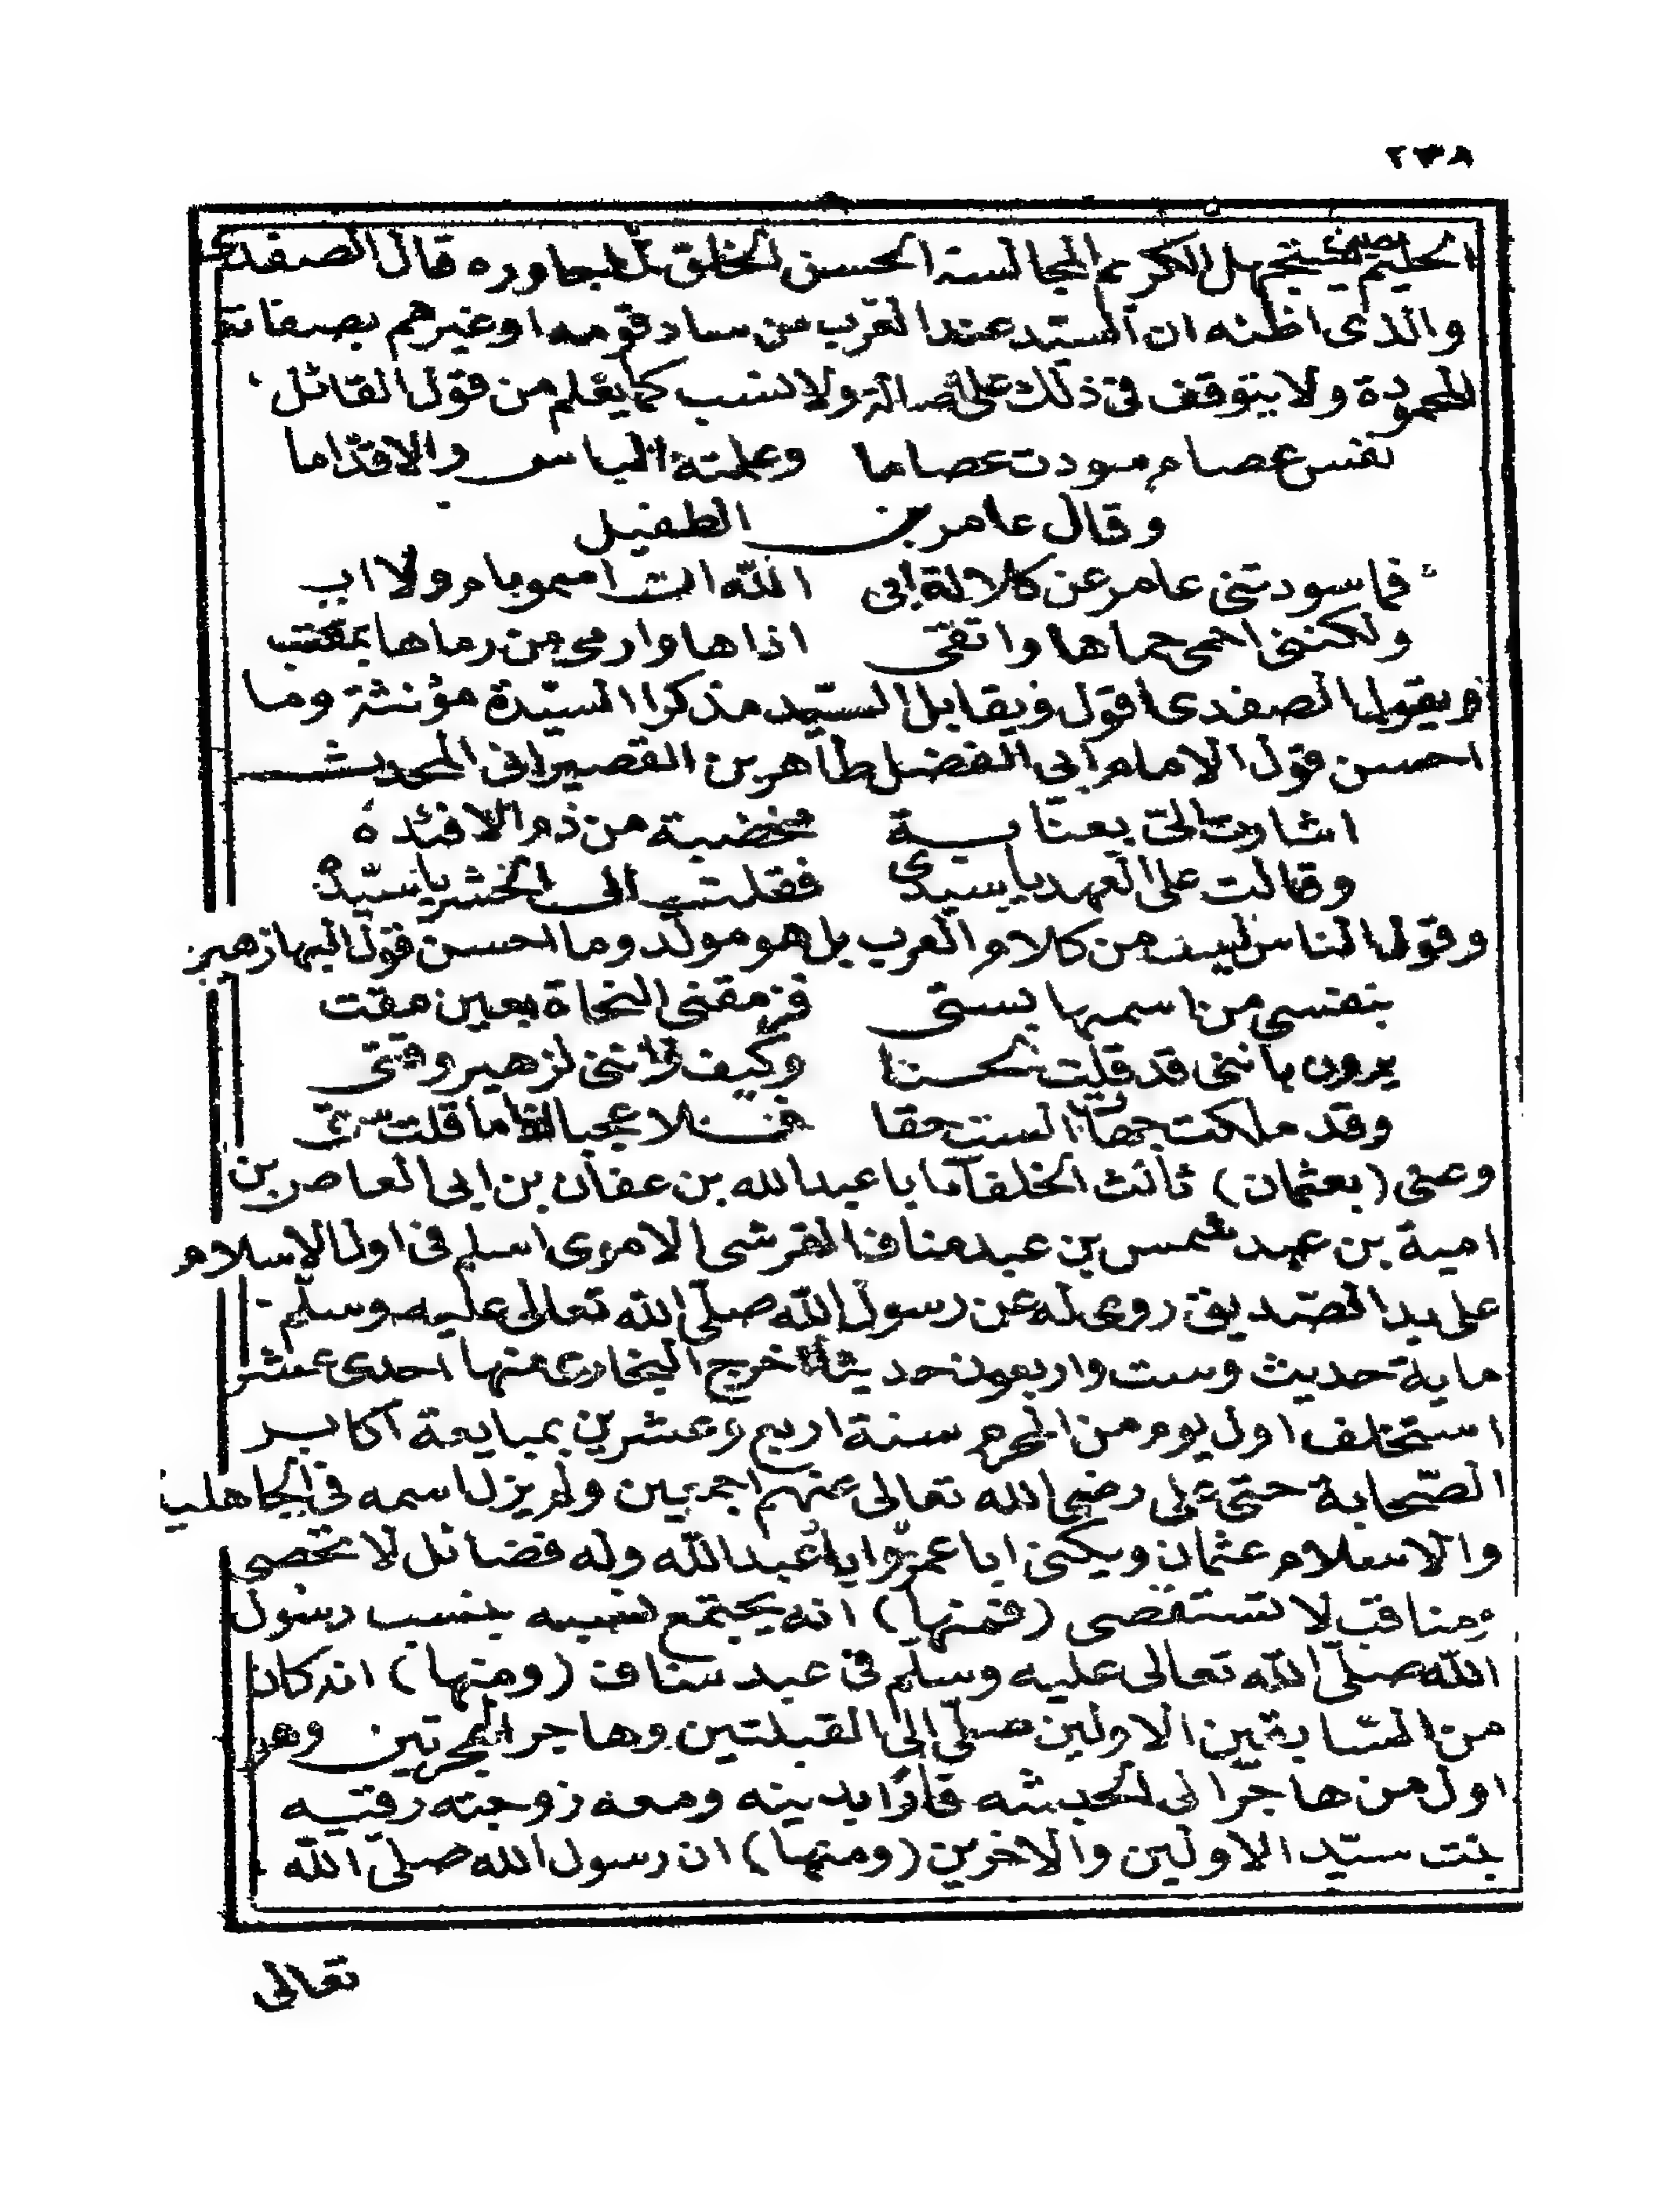 ٢٣٨
الحليم حين يستجهل الكريم المجالسة الحسن الخلق لمجاوره قال الصفدى
والذى اظنه ان السيد عند العرب من ساد قومه او غيرهم بصفاته
المحمودة ولا يتوقف فى ذلك على اصالة ولا نسب كما يعلم من قول القائل
نفس عصام سودت عصاما وعلمته الباس والاقداما
وقال عامر بن الطفيل
فما سودتنى عامر عن كلالة ابى الله ان اسمو بام ولا اب
ولكننى احمى حماها واتقى اذاها وارمى من رماها بمقنب
ويقول الصفدى اقول ويقابل السيد مذكرا السيدة مؤنثة وما
احسن قول الامام ابى الفضل طاهر بن القصيرانى المحدث
اشارت الى بعنابة مخضبة من دم الافئده
وقالت على العهد يا سيدى فقلت الى الحشر يا سيده
وقول الناس ليس من كلام العرب بل هو مولد وما احسن قول البها زهير
بنفسى من اسميها بستى فرمقنى النحاة بعين مقت
يرون باننى قد قلت لحنا وكيف واننى لزهير وقتى
وقد ملكت جهاتى الست حقا فلا عجبا اذا ما قلت ستى
وعنى (بعثمان) ثالث الخلفا ابا عبد الله بن عفان بن ابى العاص بن
امية بن عبد شمس بن عبد مناف القرشى الاموى اسلم فى اول الاسلام
على يد الصديق روى له عن رسول الله صلى الله تعالى عليه وسلم
ماية حديث وست واربعون حديثا اخرج البخارى منها احدى عشر
استخلف اول يوم من المحرم سنة اربع وعشرين بمبايعة اكابر
الصحابة حتى على رضى الله تعالى عنهم اجمعين ولم يزل اسمه فى الجاهلية
والاسلام عثمان ويكنى ابا عمرو وابا عبد الله وله فضائل لا تحصى
ومناقب لا تستقصى (فمنها) انه يجتمع نسبه بنسب رسول
الله صلى الله تعالى عليه وسلم فى عبد مناف (ومنها) انه كان
من السابقين الاولين صلى الى القبلتين وهاجر الهجرتين وهو
اول من هاجر الى الحبشه فارا بدينه ومعه زوجته رقيه
بنت سيد الاولين والاخرين (ومنها) ان رسول الله صلى الله
تعالى